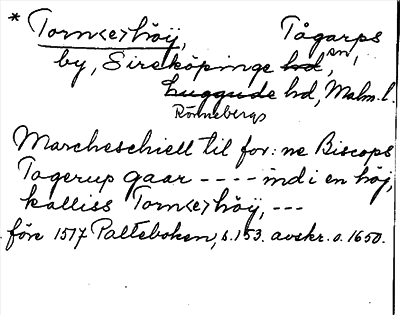 * Torn<e>höÿ, Tågarps
by, Sireköpinge hd, sn,
Luggude hd, Malm. l.
Rönnebergs
Marcheschiell til for: ne Biscops
Tagerup gaar ---- ind i en höj,
kalliss Torn<e>höÿ, ---
före 1517 Palteboken, s. 153. avskr. o. 1650.